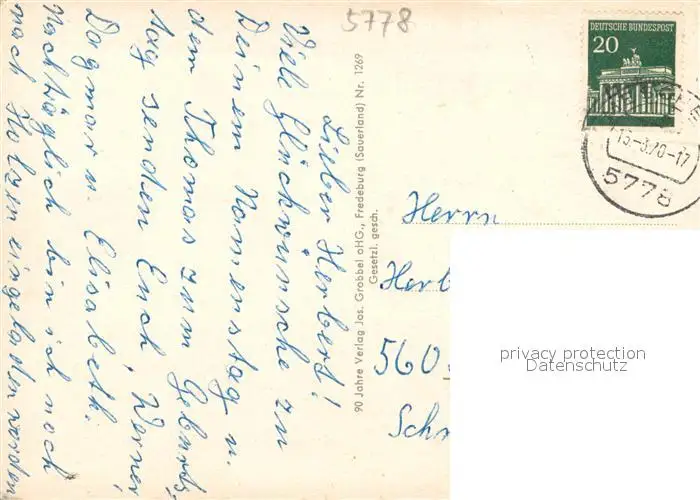 5778
Lieber Herbert!
Viele Glückwünsche zu
Deinem Namenstag u.
dem Thomas zum Geburts-
tag senden Euch, Werner
Dagmar u. Elisabeth.
Nachträglich bin ich noch
nach Holzen eingeladen worden
90 Jahre Verlag Jos. Grobbel oHG., Fredeburg (Sauerland) Nr. 1269
Gesetzl. gesch.
DEUTSCHE BUNDESPOST
20
15-3.70-17
5778
Herrn
Herb
560
Schr
privacy protection
Datenschutz